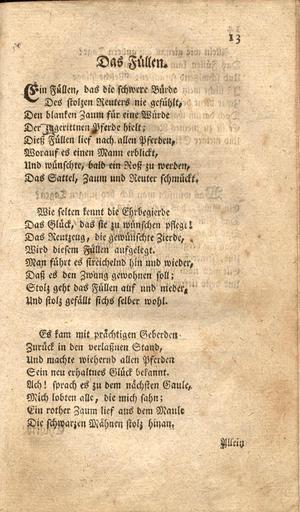 13
Das Füllen.
Ein Füllen, das die schwere Bürde
Des stolzen Reuters nie gefühlt,
Den blanken Zaum für eine Würde
Der zugerittnen Pferde hielt;
Dieß Füllen lief nach allen Pferden,
Worauf es einen Mann erblickt,
Und wünschte, bald ein Roß zu werden,
Das Sattel, Zaum und Reuter schmückt.
Wie selten kennt die Ehrbegierde
Das Glück, das sie zu wünschen pflegt!
Das Reutzeug, die gewünschte Zierde,
Wird diesem Füllen aufgelegt.
Man führt es streichelnd hin und wieder,
Daß es den Zwang gewohnen soll;
Stolz geht das Füllen auf und nieder,
Und stolz gefällt sichs selber wohl.
Es kam mit prächtigen Geberden
Zurück in den verlaßnen Stand,
Und machte wiehernd allen Pferden
Sein neu erhaltnes Glück bekannt.
Ach! sprach es zu dem nächsten Gaule,
Mich lobten alle, die mich sahn;
Ein rother Zaum lief aus dem Maule
Die schwarzen Mähnen stolz hinan.
Allein